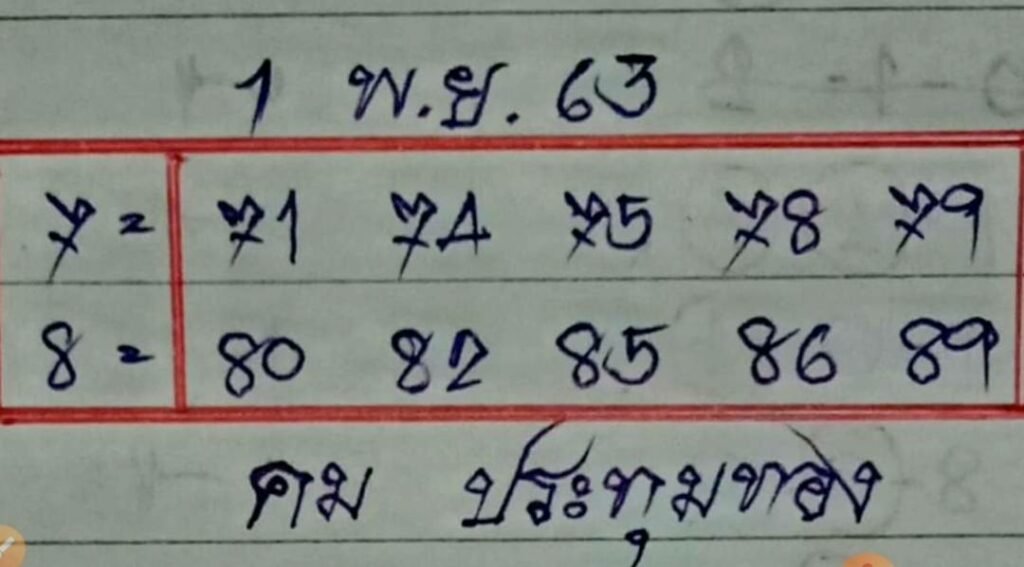 1 พ.ย. 63
7 = 71 74 75 78 79
8 = 80 82 85 86 89
คม ประทุมทอง